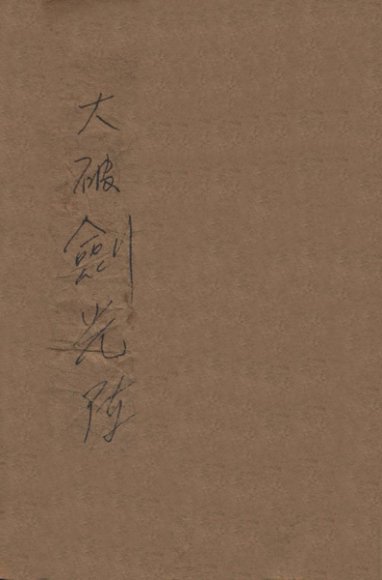 大破劍光阵